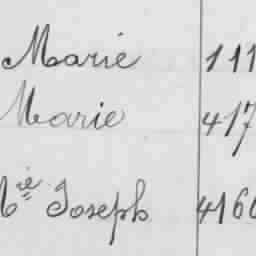 Marie 111
Marie 417
Mie Joseph 4160